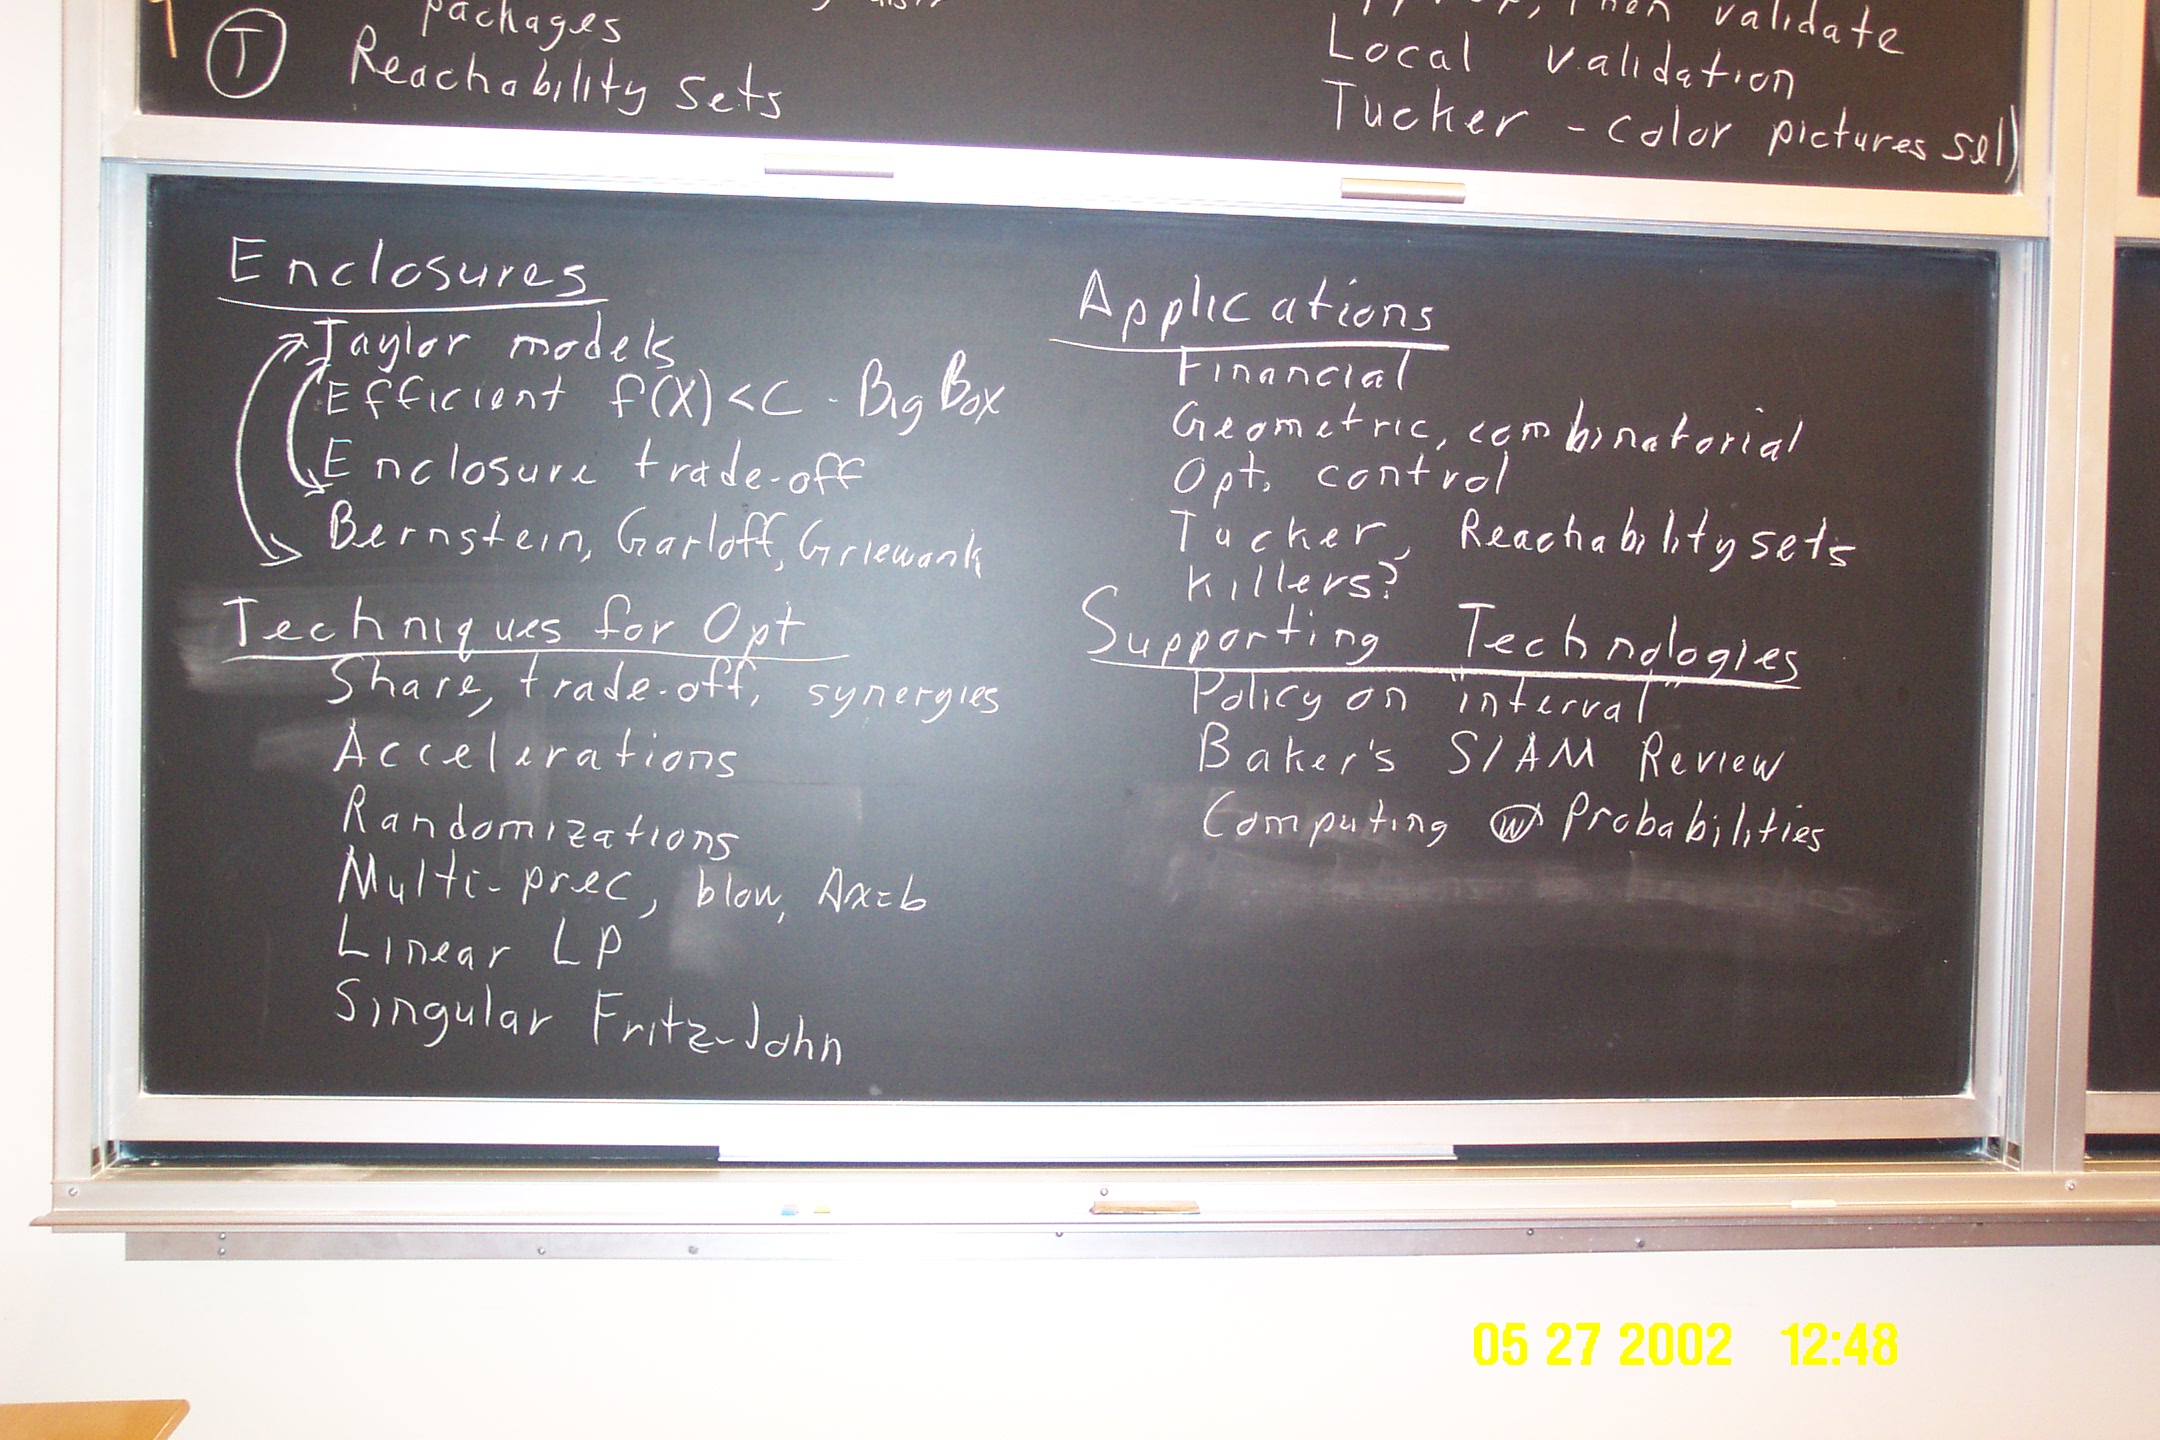 packages
T Reachability Sets
then validate
Local validation
Tucker - color pictures sell
Enclosures
Taylor models
Efficient f(X)<C - Big Box
Enclosure trade-off
Bernstein, Garloff, Griewank
Techniques for Opt
Share, trade-off, synergies
Accelerations
Randomizations
Multi-prec, blow, Ax=b
Linear LP
Singular Fritz-John
Applications
Financial
Geometric, combinatorial
Opt. control
Tucker, Reachability sets
Killers?
Supporting Technologies
Policy on "interval"
Baker's SIAM Review
Computing w Probabilities
05 27 2002 12:48